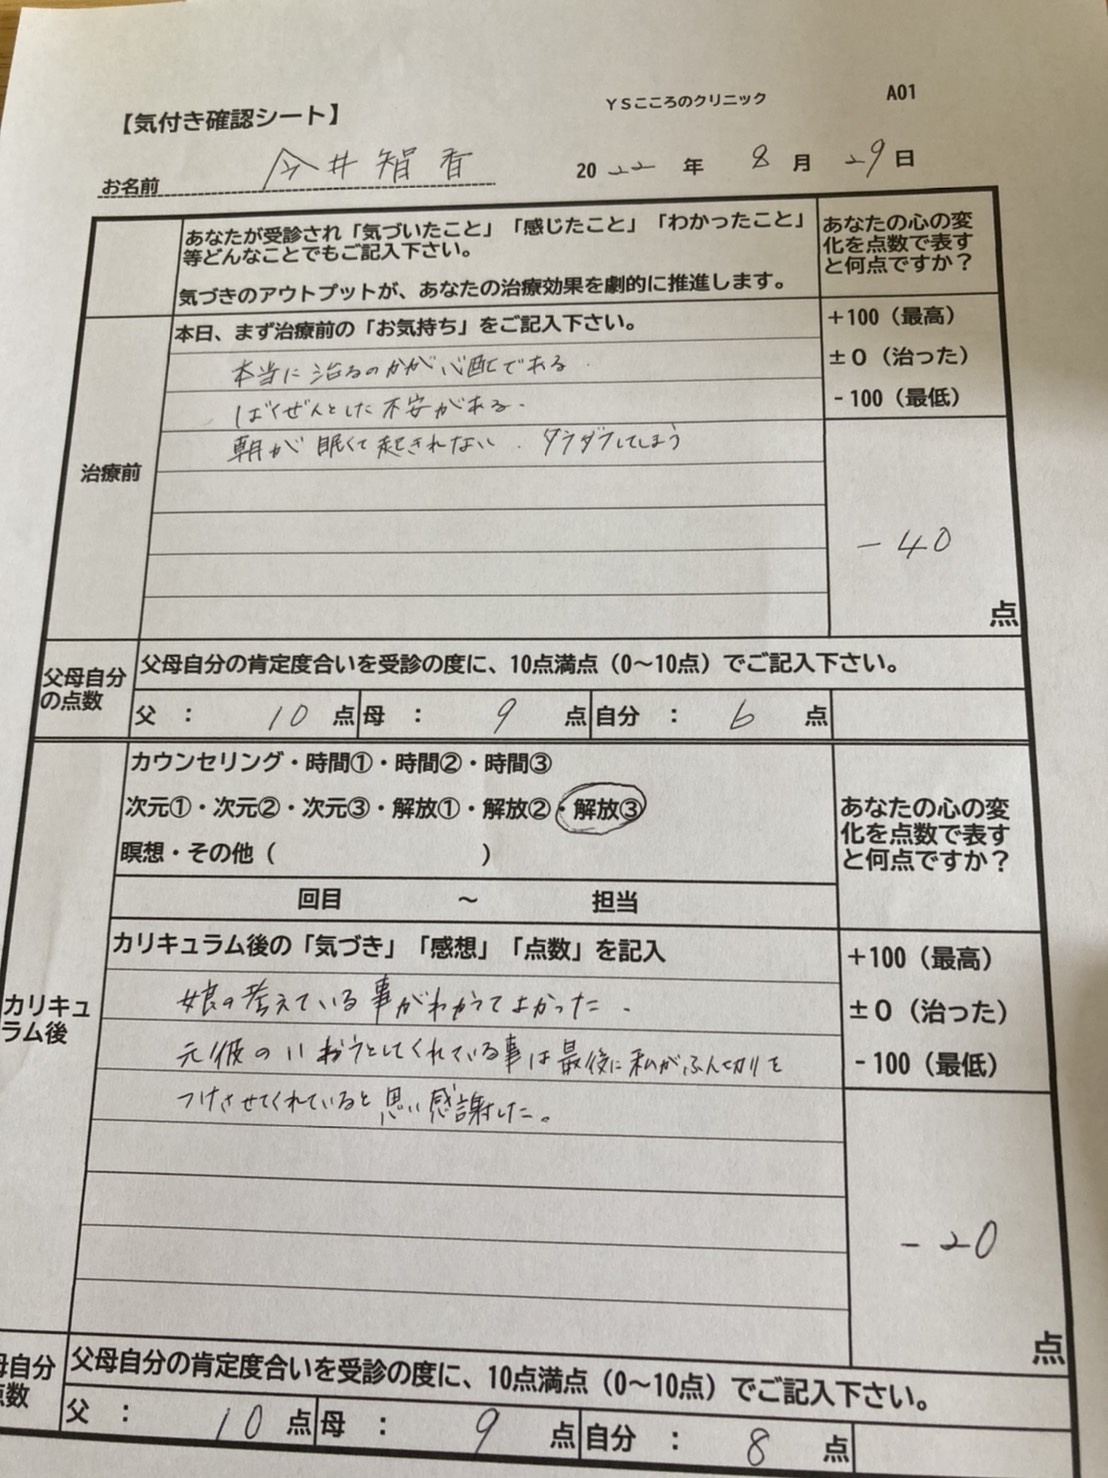 【気付き確認シート】
YSこころのクリニック
A01
お名前 今井智香
2022年8月29日
あなたが受診され「気づいたこと」「感じたこと」「わかったこと」
等どんなことでもご記入下さい。
気づきのアウトプットが、あなたの治療効果を劇的に推進します。
あなたの心の変
化を点数で表す
と何点ですか？
治療前
本日、まず治療前の「お気持ち」をご記入下さい。
本当に治るのかが心配である.
ばくぜんとした不安がある.
朝が眠くて起きれない. ダラダラしてしまう
+100（最高）
±0（治った）
-100（最低）
-40
点
父母自分
の点数
父母自分の肯定度合いを受診の度に、10点満点（0～10点）でご記入下さい。
父 ： 10 点 母 ： 9 点 自分 ： 6 点
カリキュ
ラム後
カウンセリング・時間①・時間②・時間③
次元①・次元②・次元③・解放①・解放②・解放③
瞑想・その他（ ）
回目 ～ 担当
あなたの心の変
化を点数で表す
と何点ですか？
カリキュラム後の「気づき」「感想」「点数」を記入
娘の考えている事がわかってよかった.
元彼のいおうとしてくれている事は最後に私がふん切りを
つけさせてくれていると思い感謝した。
+100（最高）
±0（治った）
-100（最低）
-20
点
母自分
点数
父母自分の肯定度合いを受診の度に、10点満点（0～10点）でご記入下さい。
父 ： 10 点 母 ： 9 点 自分 ： 8 点